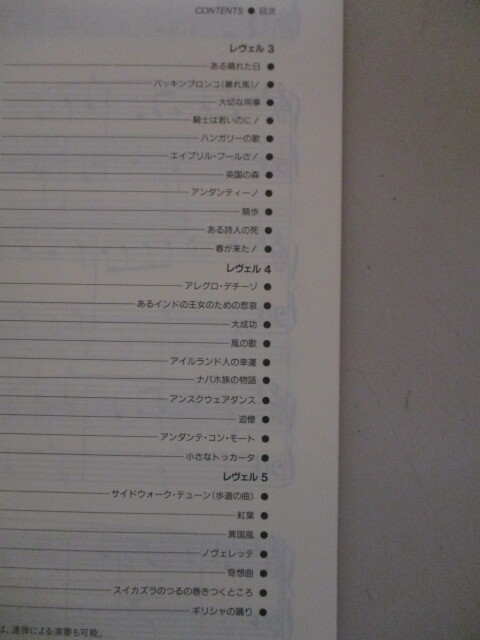 CONTENTS ● 目次
レヴェル 3
ある晴れた日 ●
バッキンブロンコ(暴れ馬)! ●
大切な用事 ●
騎士は若いのに! ●
ハンガリーの歌 ●
エイプリル・フールさ! ●
英国の森 ●
アンダンティーノ ●
競歩 ●
ある詩人の死 ●
春が来た! ●
レヴェル 4
アレグロ・デチーソ ●
あるインドの王女のための悲哀 ●
大成功 ●
風の歌 ●
アイルランド人の幸運 ●
ナバホ族の物語 ●
アンスクウェアダンス ●
追憶 ●
アンダンテ・コン・モート ●
小さなトッカータ ●
レヴェル 5
サイドウォーク・テューン(歩道の曲) ●
紅葉 ●
異国風 ●
ノヴェレッテ ●
奇想曲 ●
スイカズラのつるの巻きつくところ ●
ギリシャの踊り ●
は、連弾による演奏も可能。